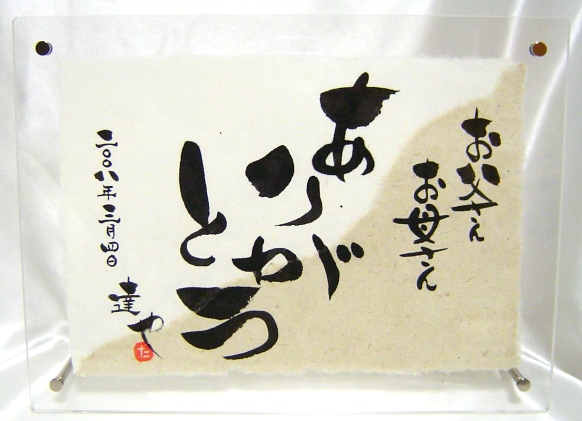 お父さん
お母さん
ありがとう
二〇〇八年三月四日
達や
た